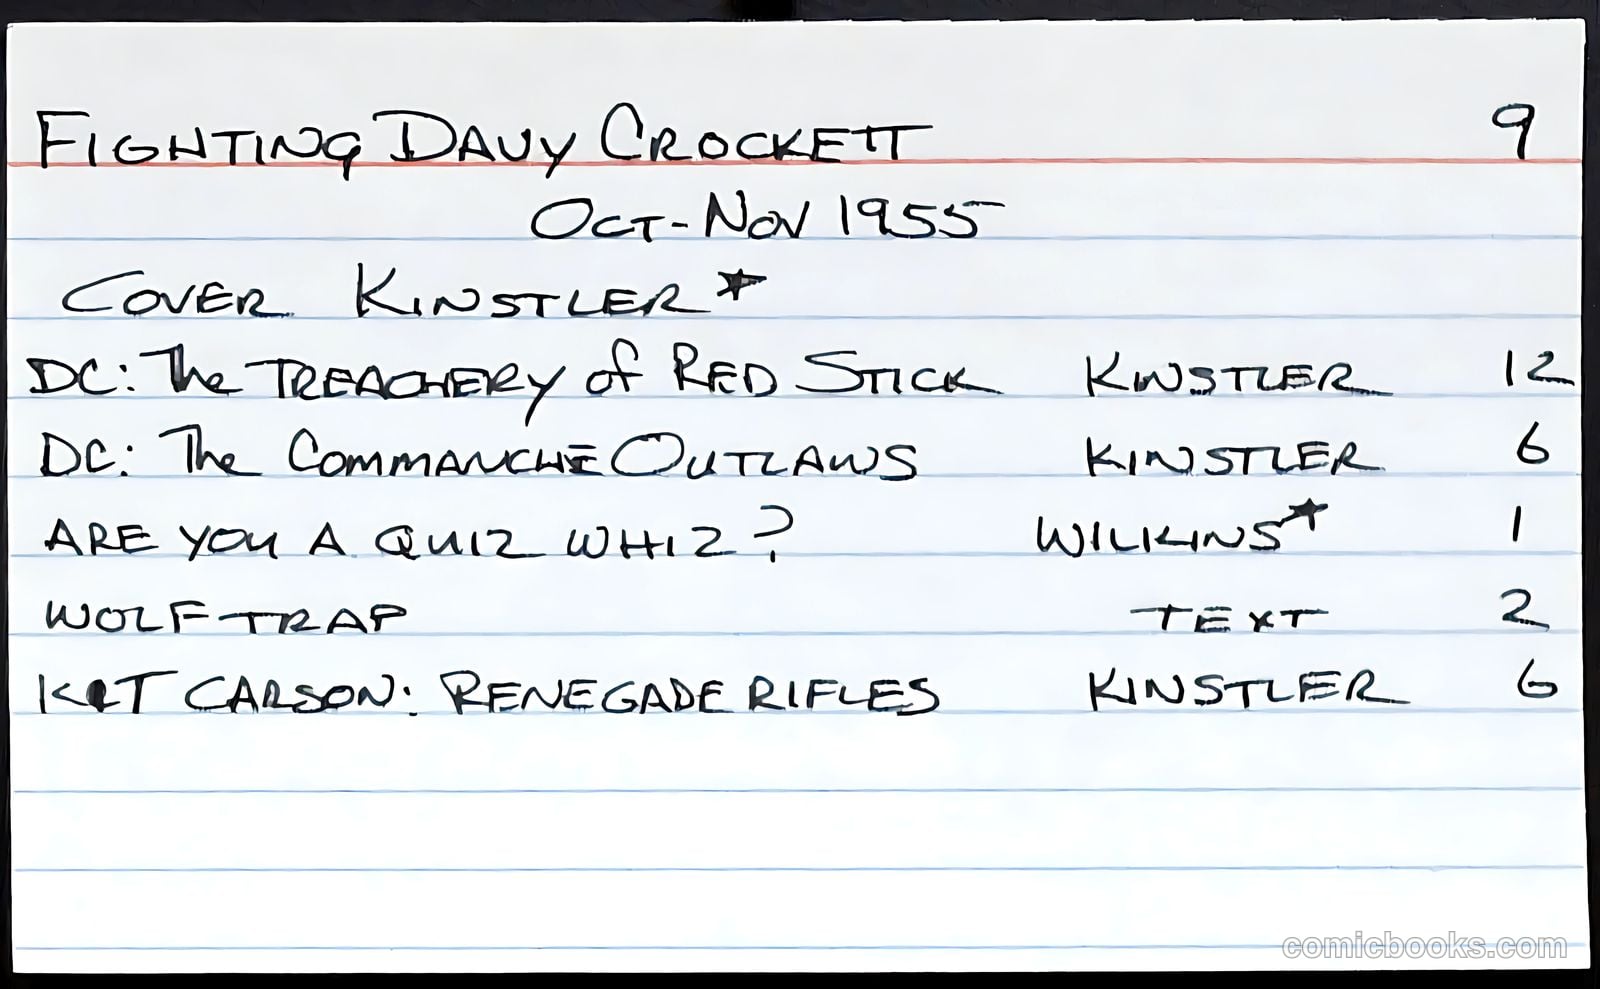 FIGHTING DAVY CROCKETT 9
OCT-NOV 1955
COVER KINSTLER★
DC: The TREACHERY of RED STICK KINSTLER 12
DC: The COMMANCHE OUTLAWS KINSTLER 6
ARE YOU A QUIZ WHIZ? WILKINS★ 1
WOLF TRAP TEXT 2
KIT CARSON: RENEGADE RIFLES KINSTLER 6
comicbooks.com